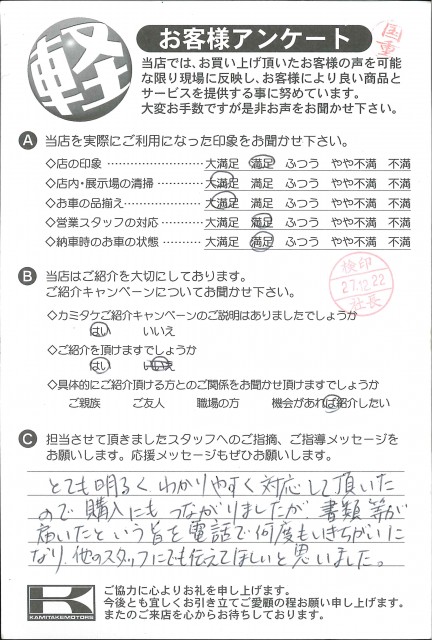 軽
お客様アンケート
当店では、お買い上げ頂いたお客様の声を可能
な限り現場に反映し、お客様により良い商品と
サービスを提供する事に努めています。
大変お手数ですが是非お声をお聞かせ下さい。
A 当店を実際にご利用になった印象をお聞かせ下さい。
◇店の印象 ………………… 大満足 満足 ふつう やや不満 不満
◇店内・展示場の清掃………… 大満足 満足 ふつう やや不満 不満
◇お車の品揃え………………… 大満足 満足 ふつう やや不満 不満
◇営業スタッフの対応 ………… 大満足 満足 ふつう やや不満 不満
◇納車時のお車の状態 ………… 大満足 満足 ふつう やや不満 不満
B 当店はご紹介を大切にしております。
ご紹介キャンペーンについてお聞かせ下さい。
検印
27.12.22
社長
◇カミタケご紹介キャンペーンのご説明はありましたでしょうか
はい いいえ
◇ご紹介を頂けますでしょうか
はい いいえ
◇具体的にご紹介頂ける方とのご関係をお聞かせ頂けますでしょうか
ご親族 ご友人 職場の方 機会があれば紹介したい
C 担当させて頂きましたスタッフへのご指摘、ご指導メッセージを
お願いします。応援メッセージもぜひお願いします。
とても明るく、わかりやすく対応して頂いた
ので購入にもつながりましたが、書類等が
届いたという旨を電話で何度もいきちがいに
なり、他のスタッフにても伝えてほしいと思いました。
K
KAMITAKEMOTORS
ご協力に心よりお礼を申し上げます。
今後とも宜しくお引き立てご愛顧の程お願い申し上げます。
またのご来店を心からお待ちしております。